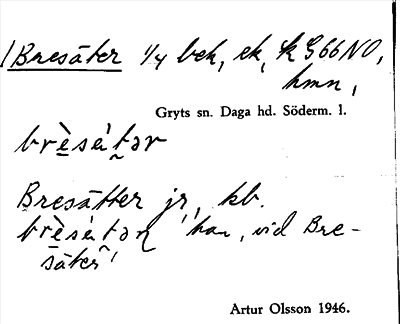 /Bresäter 1/4 bek, ek, k G66NO,
hmn,
Gryts sn. Daga hd. Söderm. l.
brèsä́tər
Bresätter jr, kb.
brèsä́tən han, vid Bre-
säter
Artur Olsson 1946.